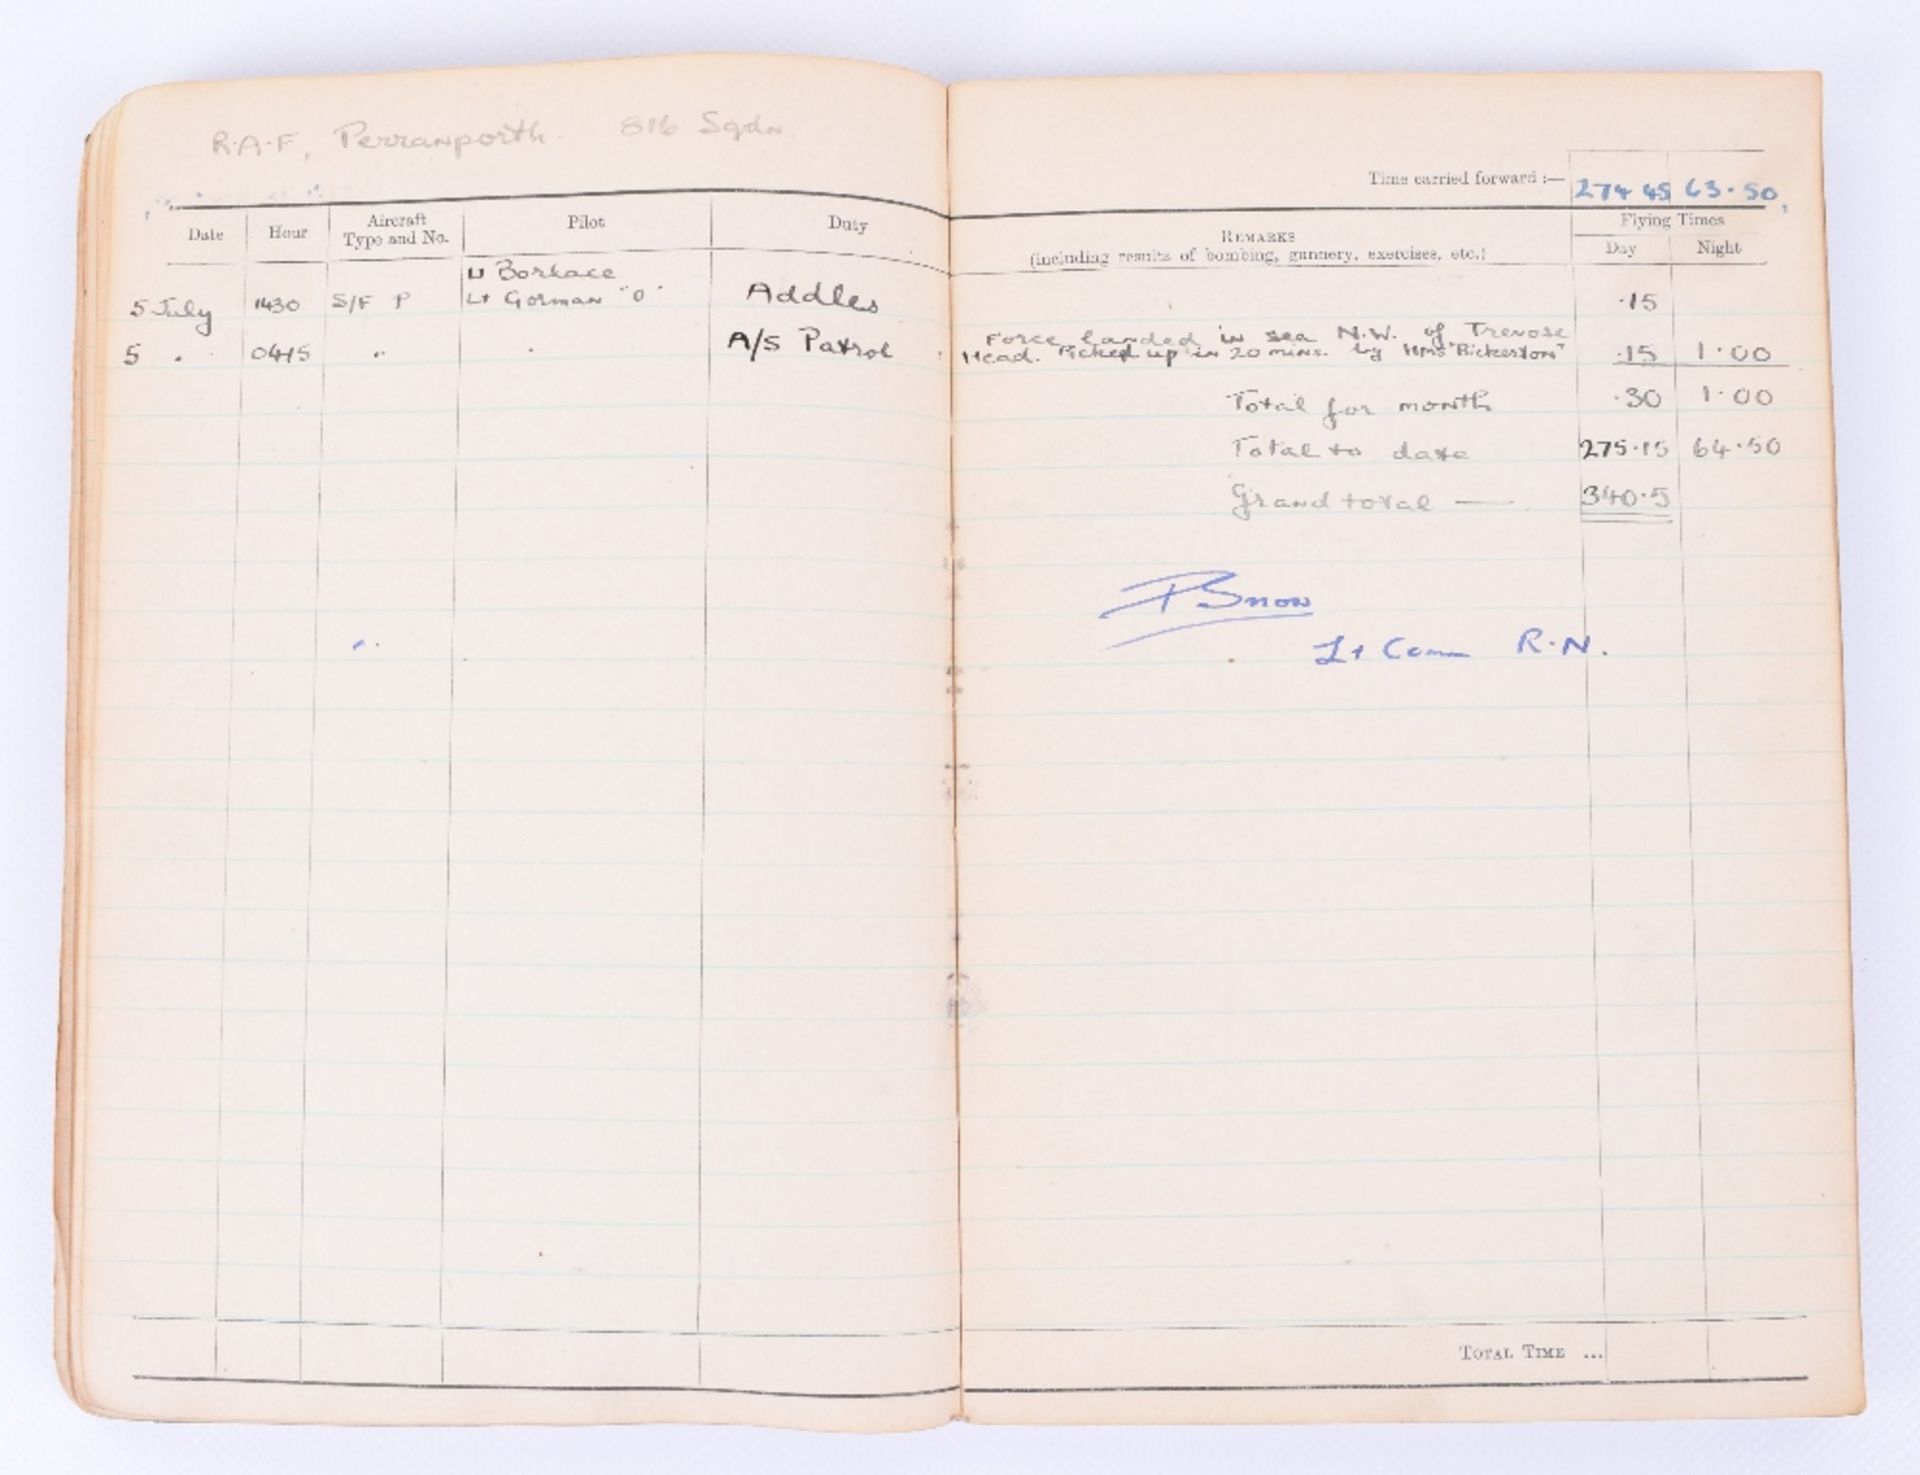 R.A.F, Perranporth. 816 Sqdn.
Time carried forward :— 274 45 63.50
Date Hour Aircraft Type and No. Pilot Duty REMARKS (including results of bombing, gunnery, exercises, etc.) Flying Times Day Night
Lt Borlace
5 July 1430 S/F P Lt Gorman "O" Addles .15
Force landed in sea N.W. of Trevose
5 " 0415 " " A/S Patrol Head. Picked up in 20 mins. by HMS "Bickerton" .15 1.00
Total for month .30 1.00
Total to date 275.15 64.50
Grand total — 340.5
PSnow
Lt Comm R.N.
TOTAL TIME ...